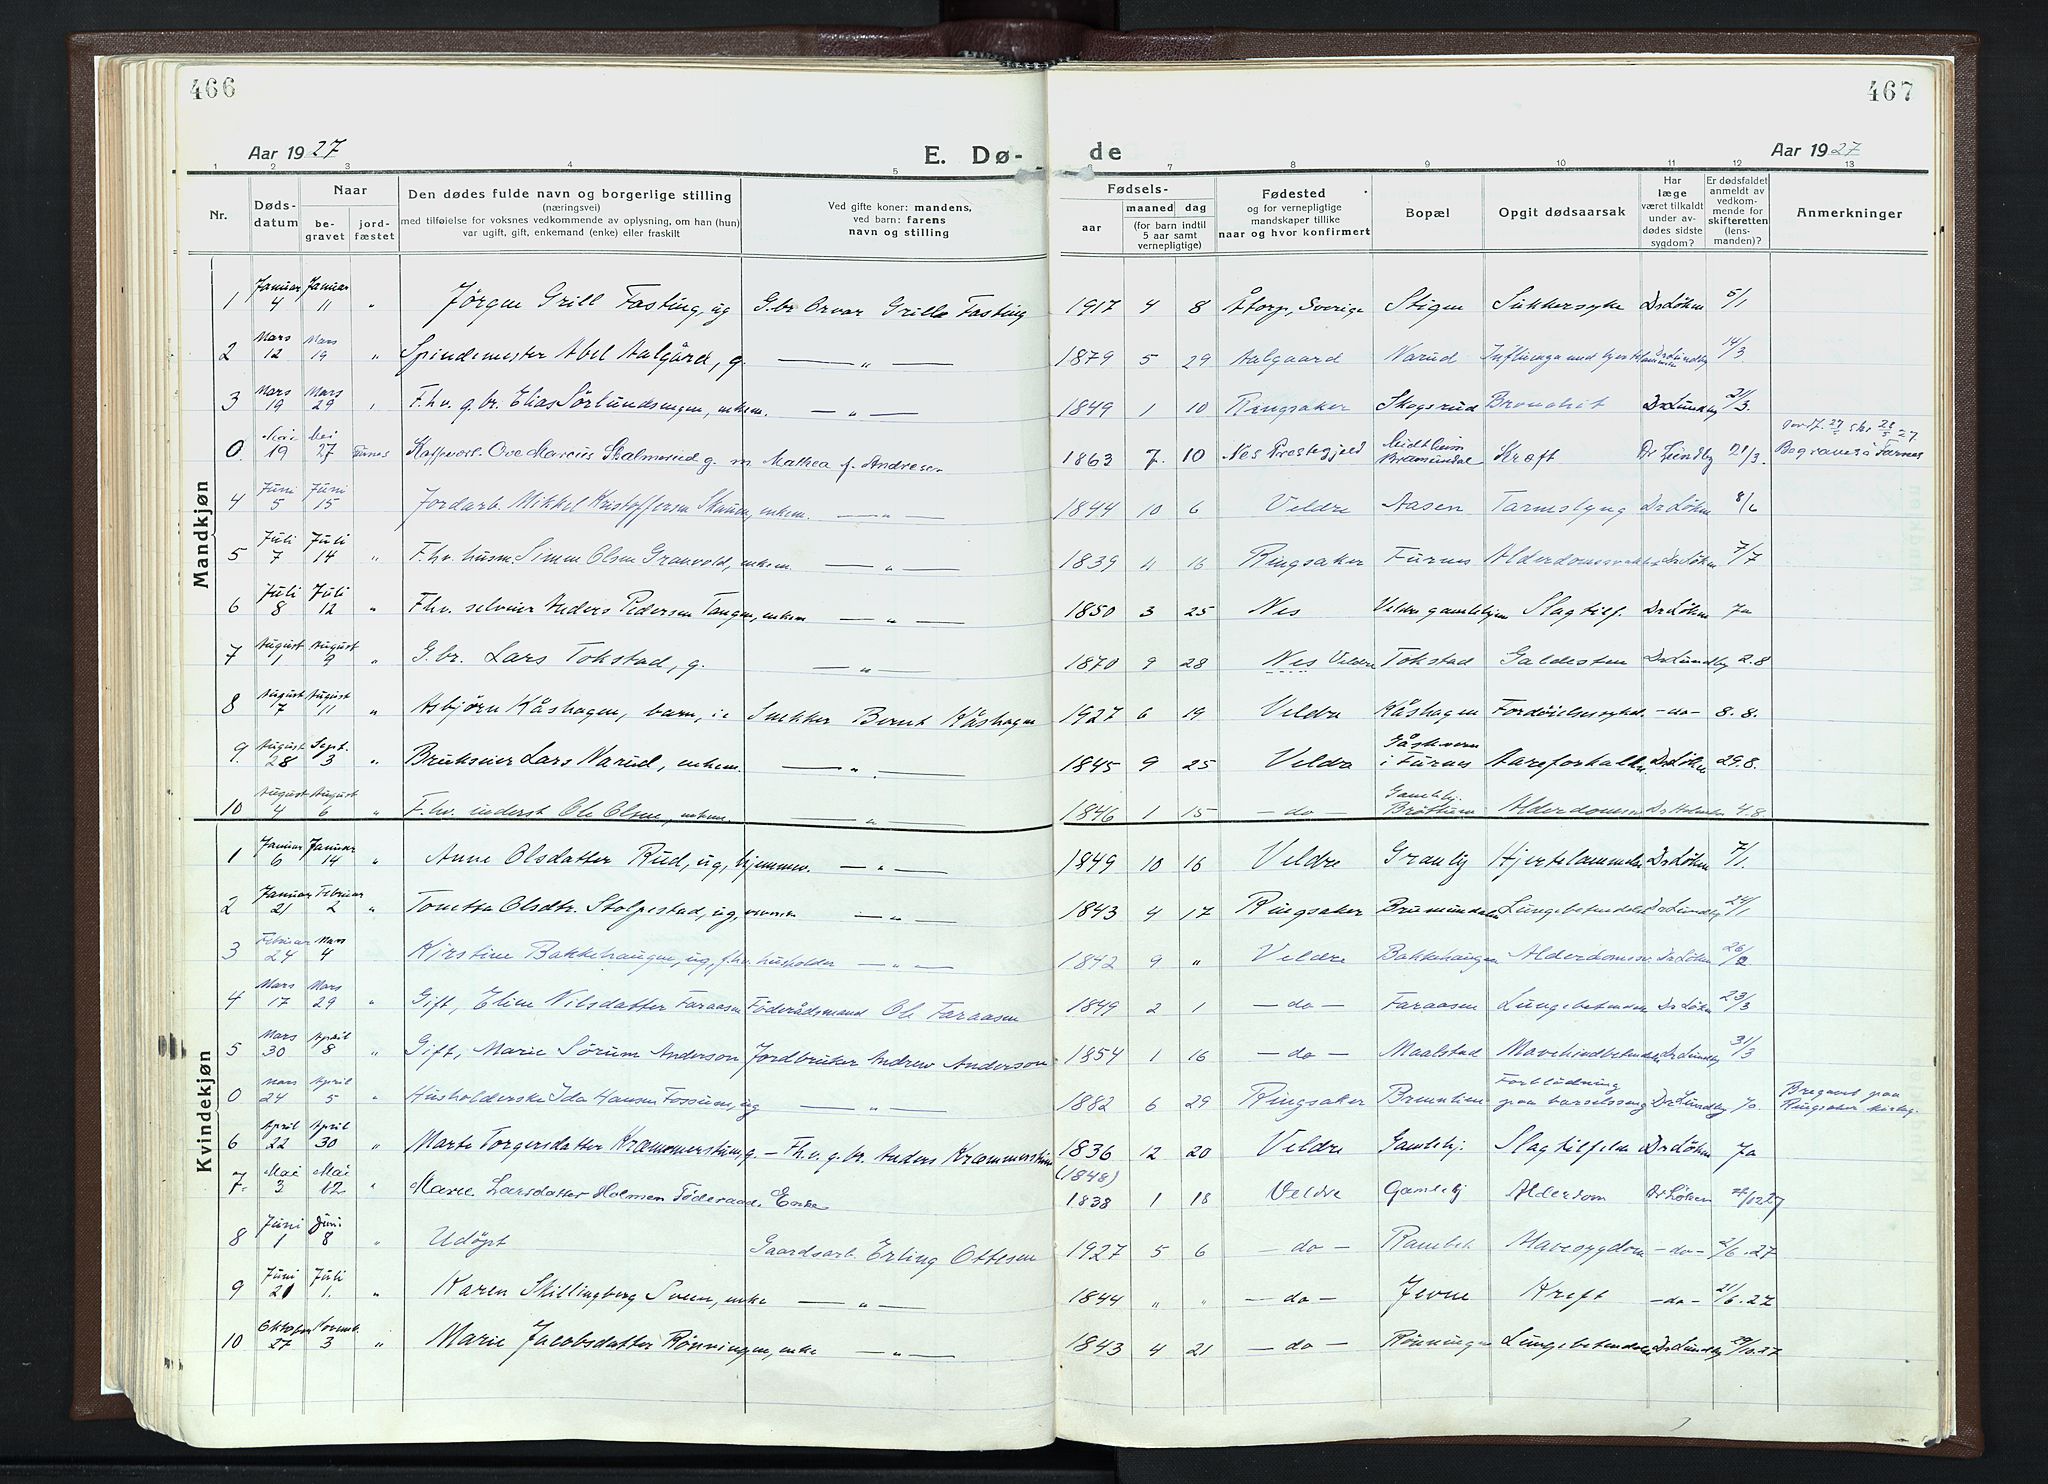 466
467
Aar 1927
E. Dø-
de
Aar 1927
1 2 3 4 5 6 7 8 9 10 11 12 13
Nr.
Døds-
datum
Naar
be-
gravet
jord-
fæstet
Den dødes fulde navn og borgerlige stilling
(næringsvei)
med tilføielse for voksnes vedkommende av oplysning, om han (hun)
var ugift, gift, enkemand (enke) eller fraskilt
Ved gifte koner: mandens,
ved barn: farens
navn og stilling
Fødsels-
aar
maaned
dag
(for barn indtil
5 aar samt
vernepligtige)
Fødested
og for vernepligtige
mandskaper tillike
naar og hvor konfirmert
Bopæl
Opgit dødsaarsak
Har
læge
været tilkaldt
under av-
dødes sidste
sygdom?
Er dødsfaldet
anmeldt av
vedkom-
mende for
skifteretten
(lens-
manden)?
Anmerkninger
Mandkjøn
1 Januar 4 Januar 11 " Jørgen Grill Fasting, ug G.br. Orvar Grille Fasting 1917 4 8 Åtorp, Sverige Stigen Sukkersyke Dr Løken 5/1
2 Mars 12 Mars 19 " Spindemester Abel Aalgård, g. — " — 1879 5 29 Aalgaard Narud Influenza med hjertelammelse Dr Lundby 14/3
3 Mars 19 Mars 29 " F.hv. g.br. Elias Sørlundsengen, enkem. — " — 1849 1 10 Ringsaker Skogsrud Bronchit Dr Lundby 21/3.
0. Mai 19 Mai 27 Furnes Ove Marcus Skalmerud g. m Mathea f. Andresen 1863 7. 10 Nes Prestegjeld Kræft Dr Lundby 21/3. Begravet i Furnes
4 Juni 5 Juni 15 Jordarb. Mikkel Kristoffersen Skauen, enkem. — " — 1844 10 6 Veldre Aasen Tarmslyng Dr Løken 8/6
5 Juli 7 Juli 14 " F.hv. husm. Simen Olsen Granvold, enkem. — " — 1839 4 16 Ringsaker Furnes Alderdomssvakhet Dr Løken 7/7
6 Juli 8 Juli 12 " F.hv. selveier Anders Pedersen Tangen, enkem — " — 1850 3 25 Nes Veldre gamlehjem Slagtilf. Dr Løken Ja
7 August 1 August 9 " G.br. Lars Tokstad, g. — " — 1870 9 28 Nes Veldre Tokstad Galdesten Dr Lundby 2.8
8 August 7 August 11 " Asbjørn Kåshagen, barn, i e Snekker Bernt Kåshagen 1927 6 19 Veldre Kåshagen Fordøielsessykd. -do- 8.8.
9. August 28 Sept. 3 " Brukseier Lars Narud, enkem. — " — 1845 9 25 Veldre Gåskvern i Furnes Aareforkalkn Dr Løken 29.8.
10 August 4 August 6 " F.hv. inderst Ole Olsen, enkem. — " — 1846 1 15 -do- Gamlehj. Brøttum Alderdomssv. 4.8.
Kvindekjøn
1 Januar 6 Januar 14 " Anne Olsdatter Rud, ug, hjemmev. — " — 1849 10 16 Veldre Granlig Hjertelammelse Dr Løken 7/1.
2 Januar 21 Februar 2 " Tonetta Olsdtr. Stolpestad, ug, — " — 1843 4 17 Ringsaker Brumundalen Lungebetændelse Dr Lundby 24/1
3 Februar 24 Mars 4 Kirstine Bakkehaugen, ug, f.hv. husholder — " — 1842 9 " Veldre Bakkehaugen Alderdomssv Dr Løken 26/2
4 Mars 17 Mars 29 " Gift, Eline Nilsdatter Faraasen Føderådsmand Ole Faraasen 1849 2 1 -do- Faraasen Lungebetændelse Dr Løken 23/3
5 Mars 30 April 8 " Gift, Marie Sørum Anderson Jordbruker Andrew Anderson 1854 1 16 -do- Maalstad Mavehindbetændelse Dr Lundby 31/3
0 Mars 24 April 5 " Husholderske Ida Hansen Fossum, ug — " — 1882 6 29 Ringsaker Forblødning paa barselseng Dr Lundby Jo. Begravet paa Ringsaker kirkeg.
6 April 22 April 30 " Marte Torgersdatter Kræmmerstuen, g. – F.hv. g.br. Anders Kræmmerstuen 1836 12 20 Veldre Gamlehj. Slagtilfelde Dr Løken Ja
7. Mai 3 Mai 12 " Marie Larsdatter Holmen Føderaad. Enke (1848) 1838 1 18 Veldre Gamlehj Alderdom Dr Løken
8 Juni 1 Juni 8 " Udøpt Gaardsarb. Erling Ottesen 1927 5 6 -do- Mavesygdom -do- 2/6.27
9 Juni 21 Juli 1. " Karen Skillingberg Sveen, enke — " — 1844 " " -do- Jevne Kreft -do- 21/6.27
10 Oktober 27 Novemb. 3 " Marie Jacobsdatter Rønningen, enke — " — 1843 4 21 -do- Rønningen Lungebetændelse Dr Lundby 29/10.27